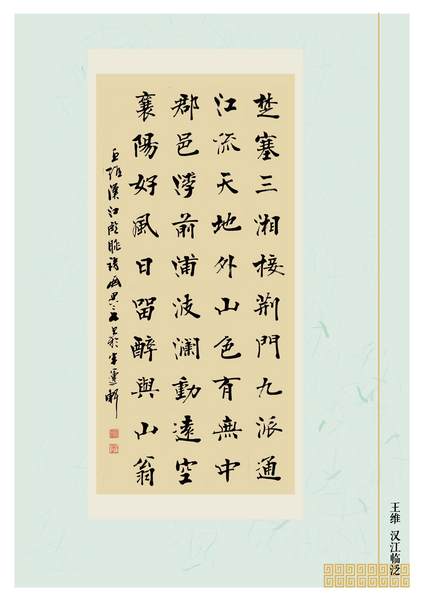 楚塞三湘接荆門九派通
江流天地外山色有無中
郡邑浮前浦波澜動遠空
襄陽好風日留醉與山翁
王維漢江臨眺詩
王维 汉江临泛